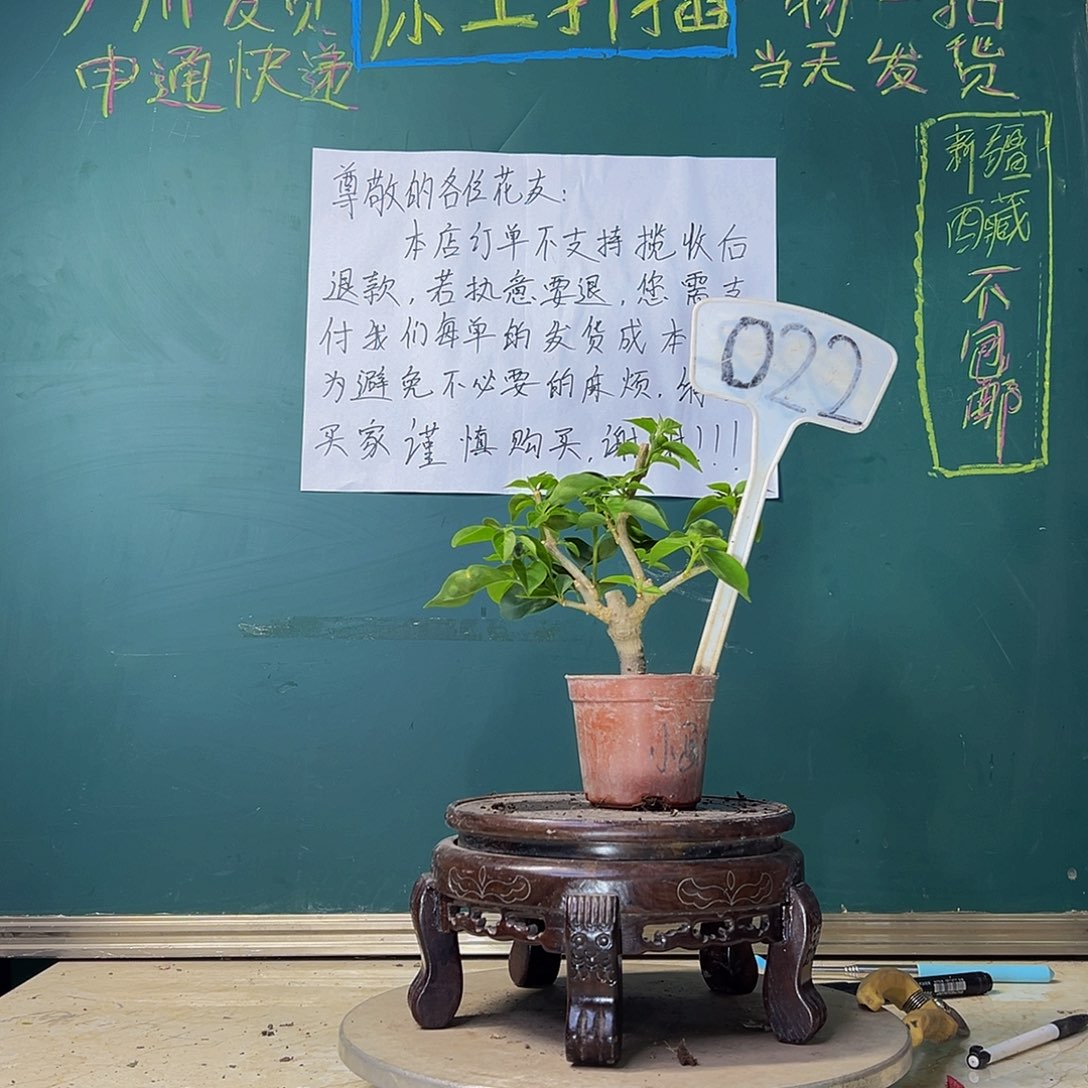 广州发货
原土打插
一物一拍
申通快递
当天发货
新疆
西藏
不包邮
尊敬的各位花友:
本店订单不支持揽收后
退款,若执意要退,您需支
付我们每单的发货成本
为避免不必要的麻烦.
买家谨慎购买,谢谢!!!
022
小